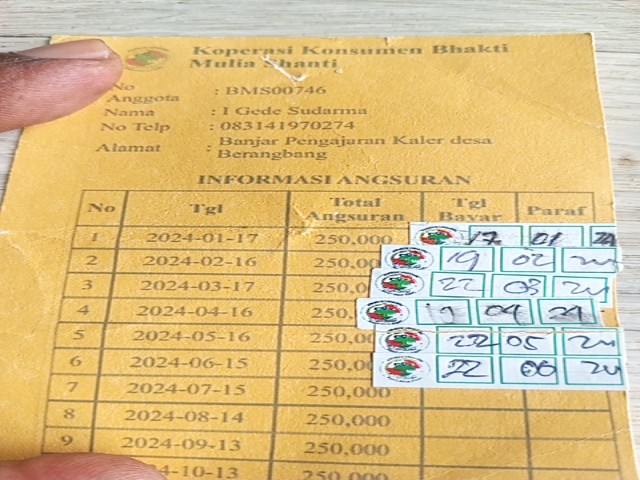 Koperasi Konsumen Bhakti
Mulia Shanti
No
Anggota : BMS00746
Nama : I Gede Sudarma
No Telp : 083141970274
Alamat : Banjar Pengajuran Kaler desa
Berangbang
INFORMASI ANGSURAN
No Tgl Total Angsuran Tgl Bayar Paraf
1 2024-01-17 250,000 17 01 24
2 2024-02-16 250,00 19 02 24
3 2024-03-17 250,0 22 03 24
4 2024-04-16 250, 04 24
5 2024-05-16 250,0 22 05 24
6 2024-06-15 250,0 22 06 24
7 2024-07-15 250,000
8 2024-08-14 250,000
9 2024-09-13 250,000
4-10-13 250,000